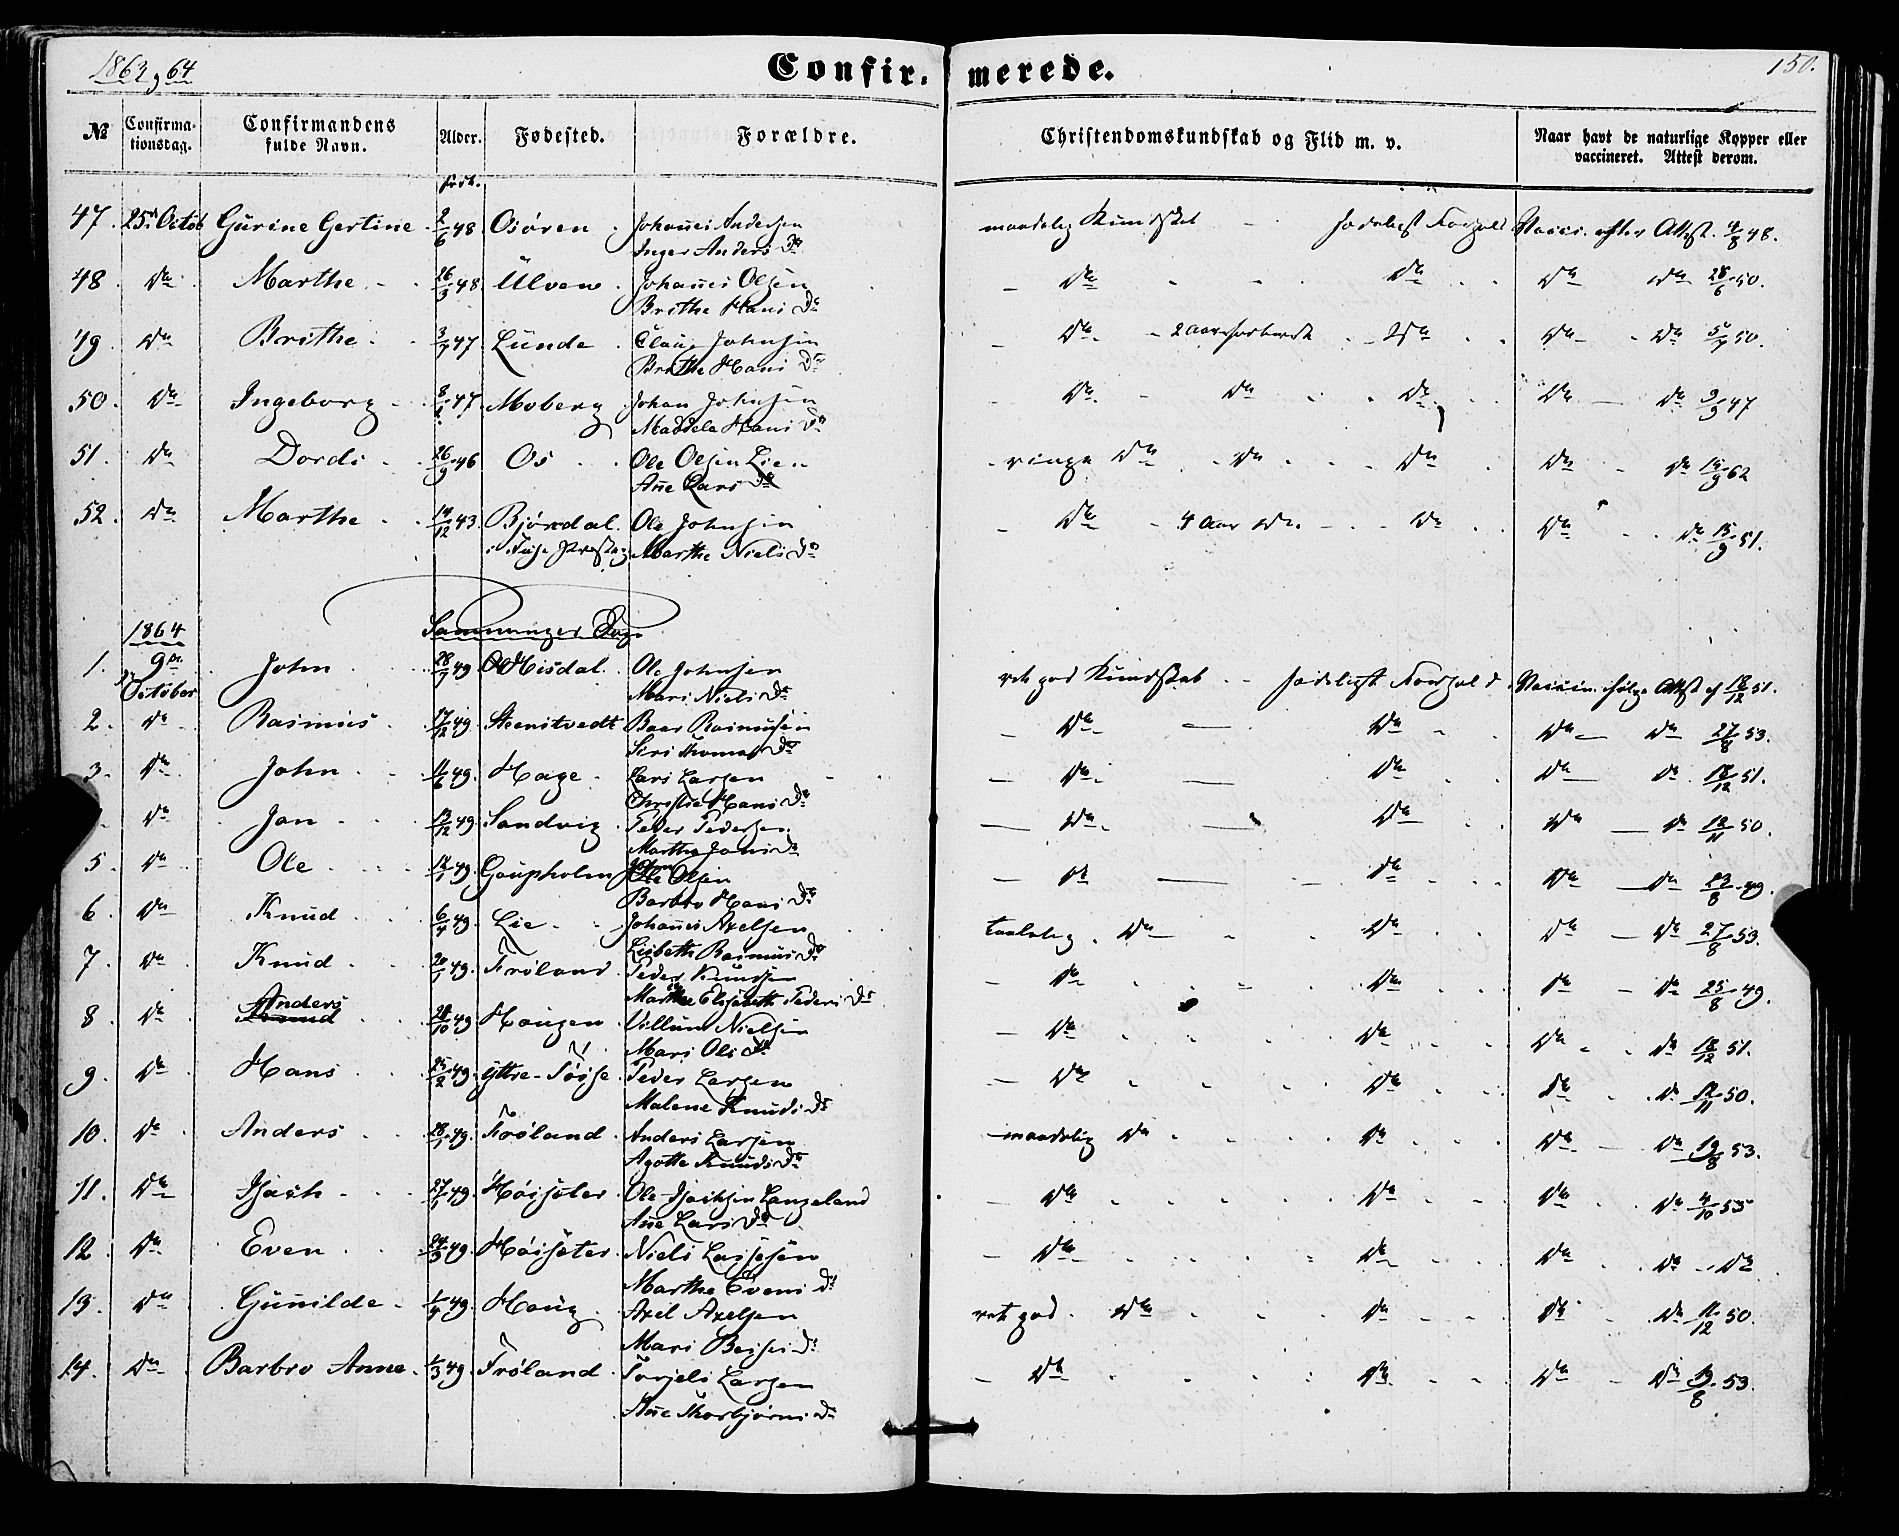 1863, 64
Confirmerede.
150.
№
Confirmationsdag.
Confirmandens fulde Navn.
Alder.
Fødested.
Forældre.
Christendomskundskab og Flid m. v.
Naar havt de naturlige Kopper eller vaccineret. Attest derom.
født.
47. 25de Octob Gurine Gertine 2/6 48 Osøren Johannes Andersen maadelig Kundskab sædeligt Forhold Vaccin. efter Attest 4/8 48.
Inger Anders Dr
48. Do Marthe 26/3 48 Ulven Johannes Olsen Do Do Do Do 28/6 50.
Brithe Hans Dr
49 Do Brithe 3/7 47 Lunde Claus Johnsen Do 2 Aar forberedt Do Do Do 5/7 50.
Brithe Hans Dr
50. Do Ingeborg 47 Moberg Johan Johnsen Do Do Do Do Do 9/9 47
Madsela Hans Dr
51. Do Dordi 26/9 46 Os Ole Olsen Lien ringe Do Do Do Do Do 62
Ane Lars Dr
52. Do Marthe 14/12 43 Bjørndal Ole Johnsen Do 4 Aar Do Do Do Do 15/9 51.
i Fuse Præsteg Marthe Niels Dr
1864 Samnanger Sogn
1. 9de October John 28/7 49 Aadland Ole Johnsen ret god Kundskab sædeligt Forhold Vaccin. ifølge Attest af 18/12 51.
Mari Niels Dr
2. Do Rasmus 17/12 49 Steensvedt Baar Rasmussen Do Do Do Do 27/8 53.
Siri Thomas Dr
3. Do John 11/6 49 Hage Lars Larsen Do Do Do Do 18/12 51.
Christie Hans Dr
Do Jan 13/12 49 Sandvig Peder Pedersen Do Do Do Do 12/11 50.
Marthe Jans Dr
5. Do Ole 12/1 49. Gaupholm Ole Olsen Do Do Do Do 23/8 49.
Barbro Hans Dr
6. Do Knud 6/4 49. Lie Johannes Axelsen taalelig Do Do Do Do 27/8 53.
Lisbeth Rasmus Dr
7 Do Knud 20/1 49. Frøland Peder Knudsen Do Do Do Do 25/8 49.
Marthe Elisabeth Peders Dr
8 Do Anders 28/10 49 Hougen Villum Nielsen Do Do Do Do 18/12 51.
Mari Ols Dr
9. Do Hans 25/2 49. Yttre-Tøsse Peder Larsen Do Do Do Do 12/11 50.
Malene Knuds Dr
10. Do Anders 28/1 49. Frøland Anders Larsen maadelig Do Do Do Do 19/8 53.
Agathe Knuds Dr
11. Do Isach 27/1 49. Høisæter Ole Isachsen Langeland Do Do Do Do 4/10 55
Ane Lars Dr
12. Do Even 24/3 49. Høisæter Niels Lassesen Do Do Do Do Do
Marthe Evens Dr
13. Do Gunilde 1/4 49. Houg Axel Axelsen ret god Do Do Do Do 11/12 50.
Mari Do
14. Do Barbro Anne 1/3 49 Frøland Torjels Larsen Do Do Do Do 19/8 53.
Ane Thorbjørns Dr